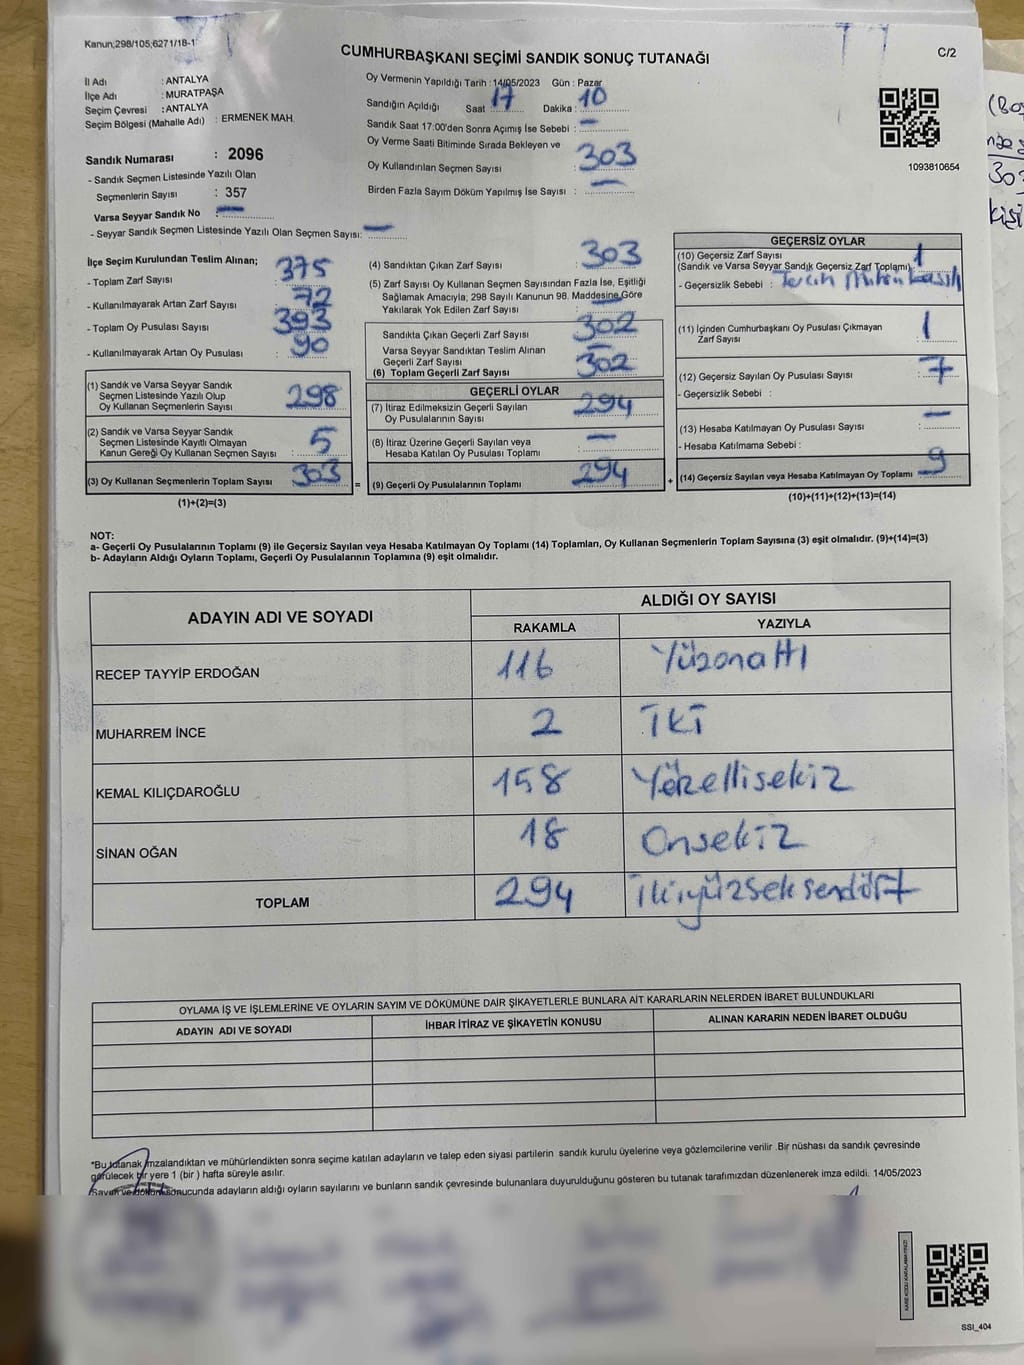 Kanun;298/105;6271/18-1
CUMHURBAŞKANI SEÇİMİ SANDIK SONUÇ TUTANAĞI
C/2
İl Adı : ANTALYA
İlçe Adı : MURATPAŞA
Seçim Çevresi : ANTALYA
Seçim Bölgesi (Mahalle Adı) : ERMENEK MAH.
Sandık Numarası : 2096
- Sandık Seçmen Listesinde Yazılı Olan
Seçmenlerin Sayısı : 357
Varsa Seyyar Sandık No : —
- Seyyar Sandık Seçmen Listesinde Yazılı Olan Seçmen Sayısı: —
Oy Vermenin Yapıldığı Tarih : 14/05/2023 Gün : Pazar
Sandığın Açıldığı Saat 17 Dakika : 10
Sandık Saat 17:00'den Sonra Açımış İse Sebebi : —
Oy Verme Saati Bitiminde Sırada Bekleyen ve
Oy Kullandırılan Seçmen Sayısı : 303
Birden Fazla Sayım Döküm Yapılmış İse Sayısı : —
1093810654
303
kişi
İlçe Seçim Kurulundan Teslim Alınan;
- Toplam Zarf Sayısı : 375
- Kullanılmayarak Artan Zarf Sayısı : 72
- Toplam Oy Pusulası Sayısı : 393
- Kullanılmayarak Artan Oy Pusulası : 90
(1) Sandık ve Varsa Seyyar Sandık
Seçmen Listesinde Yazılı Olup
Oy Kullanan Seçmenlerin Sayısı : 298
(2) Sandık ve Varsa Seyyar Sandık
Seçmen Listesinde Kayıtlı Olmayan
Kanun Gereği Oy Kullanan Seçmen Sayısı : 5
(3) Oy Kullanan Seçmenlerin Toplam Sayısı : 303
(1)+(2)=(3)
(4) Sandıktan Çıkan Zarf Sayısı : 303
(5) Zarf Sayısı Oy Kullanan Seçmen Sayısından Fazla İse, Eşitliği
Sağlamak Amacıyla; 298 Sayılı Kanunun 98. Maddesine Göre
Yakılarak Yok Edilen Zarf Sayısı : —
Sandıkta Çıkan Geçerli Zarf Sayısı : 302
Varsa Seyyar Sandıktan Teslim Alınan
Geçerli Zarf Sayısı : —
(6) Toplam Geçerli Zarf Sayısı : 302
GEÇERLİ OYLAR
(7) İtiraz Edilmeksizin Geçerli Sayılan
Oy Pusulalarının Sayısı : 294
(8) İtiraz Üzerine Geçerli Sayılan veya
Hesaba Katılan Oy Pusulası Toplamı : —
= (9) Geçerli Oy Pusulalarının Toplamı : 294
GEÇERSİZ OYLAR
(10) Geçersiz Zarf Sayısı : 1
(Sandık ve Varsa Seyyar Sandık Geçersiz Zarf Toplamı)
- Geçersizlik Sebebi :
(11) İçinden Cumhurbaşkanı Oy Pusulası Çıkmayan
Zarf Sayısı : 1
(12) Geçersiz Sayılan Oy Pusulası Sayısı : 7
- Geçersizlik Sebebi :
(13) Hesaba Katılmayan Oy Pusulası Sayısı : —
- Hesaba Katılmama Sebebi :
+ (14) Geçersiz Sayılan veya Hesaba Katılmayan Oy Toplamı : 9
(10)+(11)+(12)+(13)=(14)
NOT:
a- Geçerli Oy Pusulalarının Toplamı (9) ile Geçersiz Sayılan veya Hesaba Katılmayan Oy Toplamı (14) Toplamları, Oy Kullanan Seçmenlerin Toplam Sayısına (3) eşit olmalıdır. (9)+(14)=(3)
b- Adayların Aldığı Oyların Toplamı, Geçerli Oy Pusulalarının Toplamına (9) eşit olmalıdır.
ADAYIN ADI VE SOYADI ALDIĞI OY SAYISI
RAKAMLA YAZIYLA
RECEP TAYYİP ERDOĞAN 116 Yüzonaltı
MUHARREM İNCE 2 İKİ
KEMAL KILIÇDAROĞLU 158 Yüzellisekiz
SİNAN OĞAN 18 Onsekiz
TOPLAM 294 İkiyüzseksendört
OYLAMA İŞ VE İŞLEMLERİNE VE OYLARIN SAYIM VE DÖKÜMÜNE DAİR ŞİKAYETLERLE BUNLARA AİT KARARLARIN NELERDEN İBARET BULUNDUKLARI
ADAYIN ADI VE SOYADI İHBAR İTİRAZ VE ŞİKAYETİN KONUSU ALINAN KARARIN NEDEN İBARET OLDUĞU
*Bu tutanak imzalandıktan ve mühürlendikten sonra seçime katılan adayların ve talep eden siyasi partilerin sandık kurulu üyelerine veya gözlemcilerine verilir .Bir nüshası da sandık çevresinde
görülecek bir yere 1 (bir ) hafta süreyle asılır.
Sayım ve döküm sonucunda adayların aldığı oyların sayılarını ve bunların sandık çevresinde bulunanlara duyurulduğunu gösteren bu tutanak tarafımızdan düzenlenerek imza edildi. 14/05/2023
SSI_404